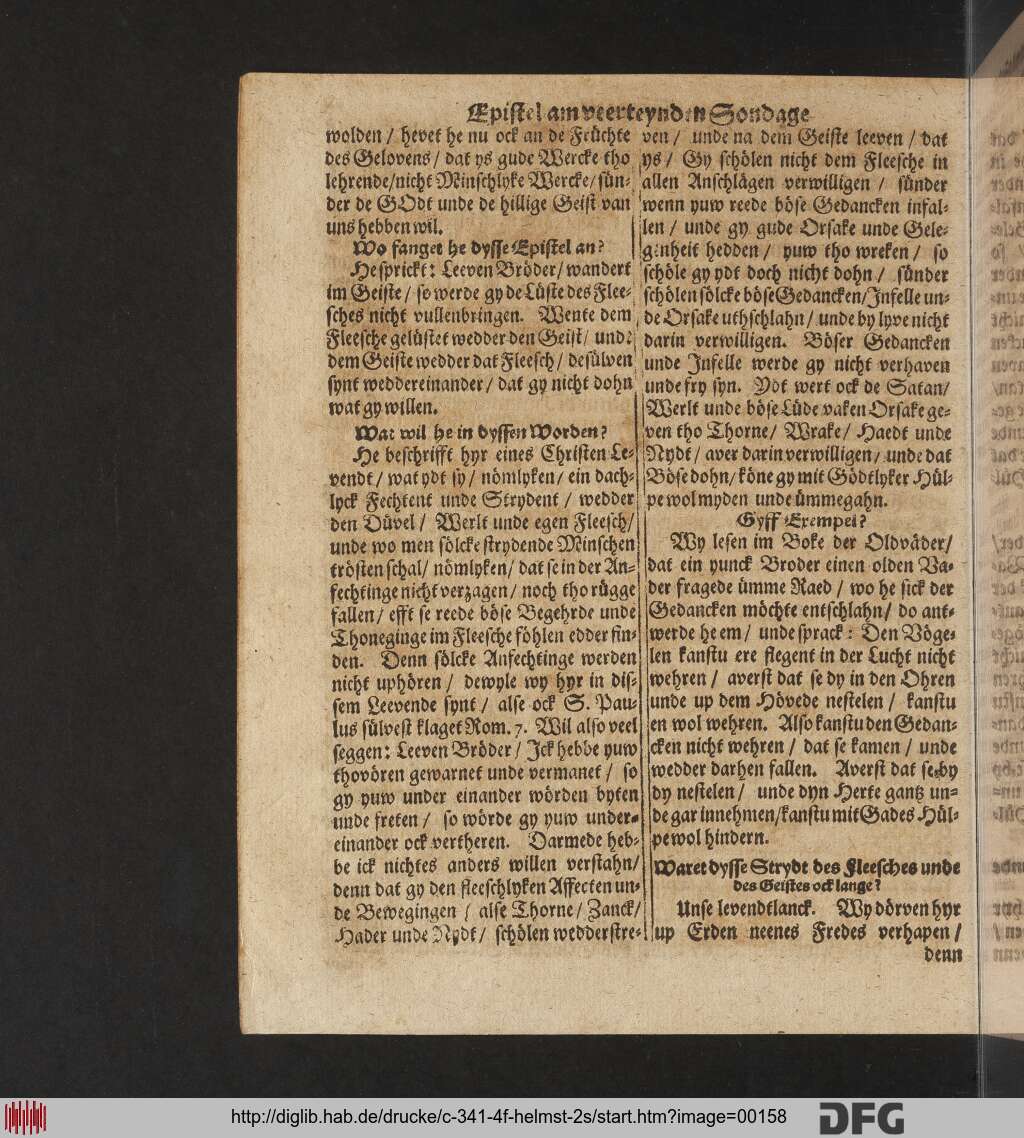 Epistel am veerteynden Sondage
wolden / hevet he nu ock an de Früchte
des Gelovens / dat ys gude Wercke tho
lehrende/nicht Minschlyke Wercke/sün-
der de GOdt unde de hillige Geist van
uns hebben wil.
Wo fanget he dysse Epistel an?
He sprickt: Leeven Bröder/ wandert
im Geiste / so werde gy de Lüste des Flee-
sches nicht vullenbringen. Wente dem
Fleesche gelüstet wedder den Geist/ unde
dem Geiste wedder dat Fleesch/ desülven
synt weddereinander / dat gy nicht dohn
wat gy willen.
Wat wil he in dyssen Worden?
He beschrifft hyr eines Christen Le-
vendt/ wat ydt sy/ nömlyken/ ein dach-
lyck Fechtent unde Strydent / wedder
den Düvel / Werlt unde egen Fleesch/
unde wo men sölcke strydende Minschen
trösten schal/ nömlyken/ dat se in der An-
fechtinge nicht verzagen/ noch tho rügge
fallen / efft se reede böse Begehrde unde
Thoneginge im Fleesche föhlen edder fin-
den. Denn sölcke Anfechtinge werden
nicht uphören / dewyle wy hyr in dis-
sem Leevende synt / alse ock S. Pau-
lus sülvest klaget Rom. 7. Wil also veel
seggen: Leeven Bröder / Ick hebbe yuw
thovören gewarnet unde vermanet / so
gy yuw under einander wörden byten
unde freten / so wörde gy yuw under-
einander ock vertheren. Darmede heb-
be ick nichtes anders willen verstahn/
denn dat gy den fleeschlyken Affecten un-
de Bewegingen / alse Thorne/ Zanck/
Hader unde Nydt/ schölen wedderstre-
ven / unde na dem Geiste leeven / dat
ys / Gy schölen nicht dem Fleesche in
allen Anschlägen verwilligen / sünder
wenn yuw reede böse Gedancken infal-
len / unde gy gude Orsake unde Gele-
genheit hedden / yuw tho wreken / so
schöle gy ydt doch nicht dohn / sünder
schölen sölcke böse Gedancken/Infelle un-
de Orsake uthschlahn/ unde by lyve nicht
darin verwilligen. Böser Gedancken
unde Infelle werde gy nicht verhaven
unde fry syn. Ydt wert ock de Satan/
Werlt unde böse Lüde vaken Orsake ge-
ven tho Thorne/ Wrake/ Haedt unde
Nydt/ aver darin verwilligen/ unde dat
Böse dohn/ köne gy mit Gödtlyker Hül-
pe wol myden unde ümmegahn.
Gyff Exempel?
Wy lesen im Boke der Oldväder/
dat ein yunck Broder einen olden Va-
der fragede ümme Raed / wo he sick der
Gedancken möchte entschlahn/ do ant-
werde he em / unde sprack: Den Vöge-
len kanstu ere flegent in der Lucht nicht
wehren / averst dat se dy in den Ohren
unde up dem Hövede nestelen / kanstu
en wol wehren. Also kanstu den Gedan-
cken nicht wehren / dat se kamen / unde
wedder darhen fallen. Averst dat se by
dy nestelen / unde dyn Herte gantz un-
de gar innehmen/kanstu mit Gades Hül-
pe wol hindern.
Waret dysse Strydt des Fleesches unde
des Geistes ock lange?
Unse levendtlanck. Wy dörven hyr
up Erden neenes Fredes verhapen /
denn
http://diglib.hab.de/drucke/c-341-4f-helmst-2s/start.htm?image=00158
DFG